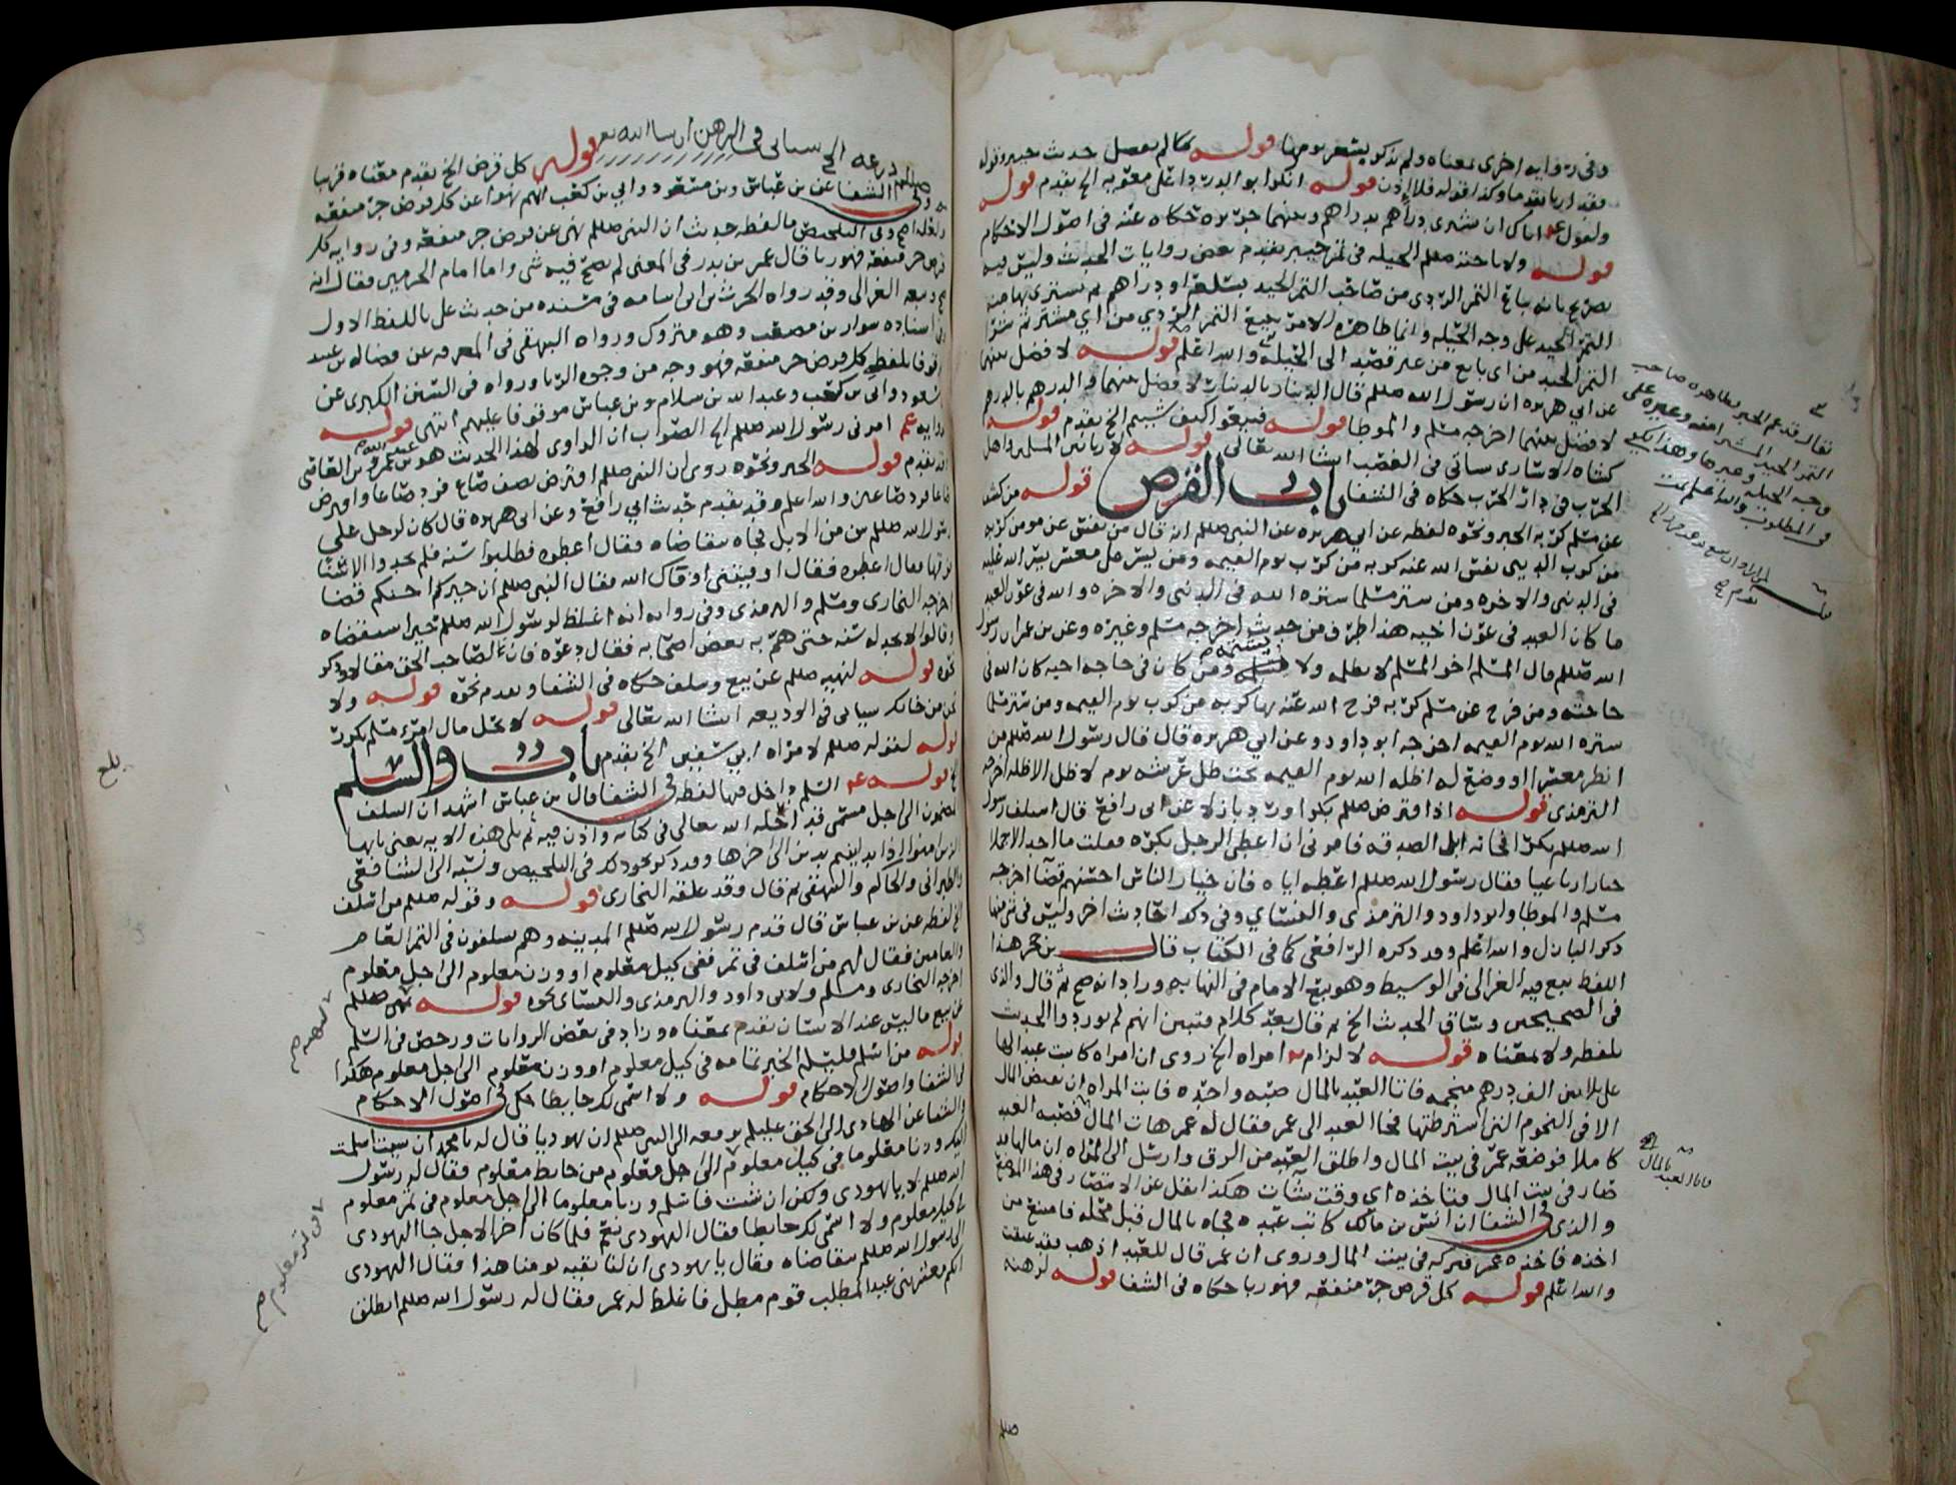 وفي رواية اخرى بمعناه ولم يذكر بشعر يومها قوله كما لم يفصل حديث خيبر وقوله
فقد اربا تقدما وكذا قوله فلا اذن قوله انكر ابو الدردا على معوية الخ تقدم قوله
ولقول عم اياك ان تشترى دراهم بدراهم وبينهما جريرة حكاه عنه في اصول الاحكام
قوله ولاباحته صللم الحيله في تمر خيبر تقدم بعض روايات الحديث وليس فيه
تصريح بانه يباع التمر الردي من صاحب التمر الجيد بسلعة او دراهم ثم يشترى بها منه
التمر الجيد على وجه الحيله وانما ظاهره الامر ببيع التمر الردي من اي مشتر ثم شرا
التمر الجيد من اى بايع من غير قصد الى الحيلة والله اعلم قوله لا فضل بينهما
عن ابي هريره ان رسول الله صللم قال الدينار بالدينار لا فضل بينهما والدرهم بالدرهم
لا فضل بينهما اخرجه مسلم والموطا قوله فبيعوا كيف شيتم الخ تقدم قوله
كشاه الاشارى سياتى في الغصب انشا الله تعالى قوله لا ربا بين المسلمين واهل
الحرب في دار الحرب حكاه في الشفا باب القرض قوله من كشف
عن مسلم كربة الخبر ونحوه لفظه عن ابي هريره عن النبي صللم انه قال من نفس عن مومن كربة
من كرب الدنيى نفس الله عنه كربه من كرب يوم القيمه ومن يسر على معسر يسر الله عليه
في الدنيى والاخره ومن ستر مسلما ستره الله في الدنيى والاخره والله في عون العبد
ما كان العبد في عون اخيه هذا طرف من حديث اخرجه مسلم وغيره وعن بن عمر ان رسول
الله صللم قال المسلم اخو المسلم لا يظلمه ولا يشتمه ومن كان في حاجه اخيه كان الله في
حاجته ومن فرج عن مسلم كربه فرج الله عنه بها كربه من كرب يوم القيمه ومن ستر مسلما
ستره الله يوم القيمه اخرجه ابو داود وعن ابي هريره قال قال رسول الله صللم من
انظر معسرا او وضع له اظله الله يوم القيمه تحت ظل عرشه يوم لا ظل الا ظله اخرجه
الترمذى قوله اذا اقترض صللم بكرا ورد بازلا عن ابى رافع قال استلف رسول
الله صللم بكرا فجاته ابل الصدقه فامرنى ان اعطى الرجل بكره فقلت ما اجد الا جملا
خيارا رباعيا فقال رسول الله صللم اعطه اياه فان خيار الناس احسنهم قضآ اخرجه
مسلم والموطا وابو داود والترمذى والنساي وفي ذلك احاديث اخر وليس في شى منها
ذكر البازل والله اعلم وقد ذكره الرافعى كما في الكتاب قال بن حجر هذا
اللفظ تبع فيه الغزالى في الوسيط وهو تبع الامام في النهايه وزاد انه صح ثم قال والذى
في الصحيحين وساق الحديث الخ ثم قال بعد كلام فتبين انهم لم يوردوا الحديث
بلفظه ولا بمعناه قوله لالزام امراه الخ روى ان امراه كاتبت عبدا لها
على ثلاثين الف درهم منجمه فاتا العبد بالمال صبه واحده فابت المراه ان تقبض المال
الا في النجوم التى اشترطتها فجا العبد الى عمر فقال له عمر هات المال فقبضه العبد
كاملا فوضعه عمر في بيت المال واطلق العبد من الرق وارسل الى المراه ان مالها قد
صار في بيت المال فتاخذه اي وقت شآت هكذا نقل عن الانتصار في هذا الموضع
والذى في الشفا ان انس بن مالك كاتب عبده فجاه بالمال قبل محله فامتنع من
اخذه فاخذه عمر فتركه في بيت المال وروى ان عمر قال للعبد اذهب فقد عتقت
والله اعلم قوله كل قرض جر منفعه فهو ربا حكاه في الشفا قوله لرهنه
درعه الخ سياتى في الرهن ان شا الله تع قوله كل قرض الخ تقدم معناه قريبا
وفي الشفا عن بن عباس وبن مسعود وابي بن كعب انهم نهوا عن كل قرض جر منفعه
وفي التلخيص ما لفظه حديث ان النبى صللم نهى عن قرض جر منفعه وفي روايه كل
قرض جر منفعه فهو ربا قال عمر بن بدر في المغنى لم يصح فيه شى واما امام الحرمين فقال انه
صح وتبعه الغزالى وقد رواه الحرث بن ابى اسامه في مسنده من حديث على باللفظ الاول
وفي اسناده سوار بن مصعب وهو متروك ورواه البيهقى في المعرفه عن فضاله بن عبيد
موقوفا بلفظ كل قرض جر منفعه فهو وجه من وجوه الربا ورواه في السنن الكبرى عن
بن مسعود وابى بن كعب وعبد الله بن سلام وبن عباس موقوفا عليهم انتهى قوله
روايه عم امرنى رسول الله صللم الخ الصواب ان الراوى لهذا الحديث هو عبد الله بن عمرو بن القاضى
تقدم قوله الخبر ونحوه روى ان النبى صللم اقترض نصف صاع فرد صاعا واقترض
صاعا فرد صاعين والله اعلم وقد تقدم حديث ابي رافع وعن ابى هريره قال كان لرجل على
رسول الله صللم سن من الابل فجاه يتقاضاه فقال اعطوه فطلبوا سنه فلم يجدوا الا سنا
فوقها فقال اعطوه فقال اوفيتنى اوفاك الله فقال النبى صللم ان خيركم احسنكم قضا
اخرجه البخارى ومسلم والترمذى وفي روايه انه اغلظ لرسول الله صللم حين استقضاه
حتى هم به بعض اصحابه فقال دعوه فان لصاحب الحق مقالا وذكر
نحوه قوله لنهيه صللم عن بيع وسلف حكاه في الشفا وتقدم نحوه قوله ولا
تخن من خانك سياتى في الوديعه انشا الله تعالى قوله لا يحل مال امرء مسلم تكرر
قوله لقوله صللم لامراه ابي سفين الخ تقدم باب والسلم
قوله السلم داخل فيها لفظه في الشفا قال بن عباس اشهد ان السلف
المضمون الى اجل مسمى قد احله الله تعالى في كتابه واذن فيه ثم تلى هذه الايه يعنى يايها
الذين امنوا اذا تداينتم بدين الى اخرها وقد ذكر نحو ذلك في التلخيص ونسبه الى الشافعى
والطبرانى والحاكم والبيهقى ثم قال وقد علقه البخارى قوله وقوله صللم من اسلف
الخ لفظه عن بن عباس قال قدم رسول الله صللم المدينه وهم يسلفون في الثمر العام
والعامين فقال لهم من اسلف في تمر ففى كيل معلوم او وزن معلوم الى اجل معلوم
اخرجه البخارى ومسلم ولابى داود والترمذى والنساى نحوه قوله نهى صللم
عن بيع ما ليس عند الانسان تقدم بمعناه وزاد في بعض الروايات ورخص في السلم
قوله من اسلم فليسلم الخبر تمامه في كيل معلوم او وزن معلوم الى اجل معلوم هكذا
في الشفا واصول الاحكام قوله ولا اسمى لك حايطا حكى في اصول الاحكام
والشفا عن الهادى الى الحق عليلم يرفعه الى النبى صللم ان يهوديا قال له يا محمد ان شيت اسلمت
اليك وزنا معلوما في كيل معلوم الى اجل معلوم من حايط معلوم فقال له رسول
الله صللم لا يا يهودى ولكن ان شيت فاسلم وزنا معلوما الى اجل معلوم في تمر معلوم
وكيل معلوم ولا اسمى لك حايطا فقال اليهودى نعم فلما كان اخر الاجل جا اليهودى
الى رسول الله صللم يتقاضاه فقال يا يهودى ان لنا بقيه يومنا هذا فقال اليهودى
انكم معشر بنى عبد المطلب قوم مطل فاغلظ له عمر فقال له رسول الله صللم انطلق
بلغ